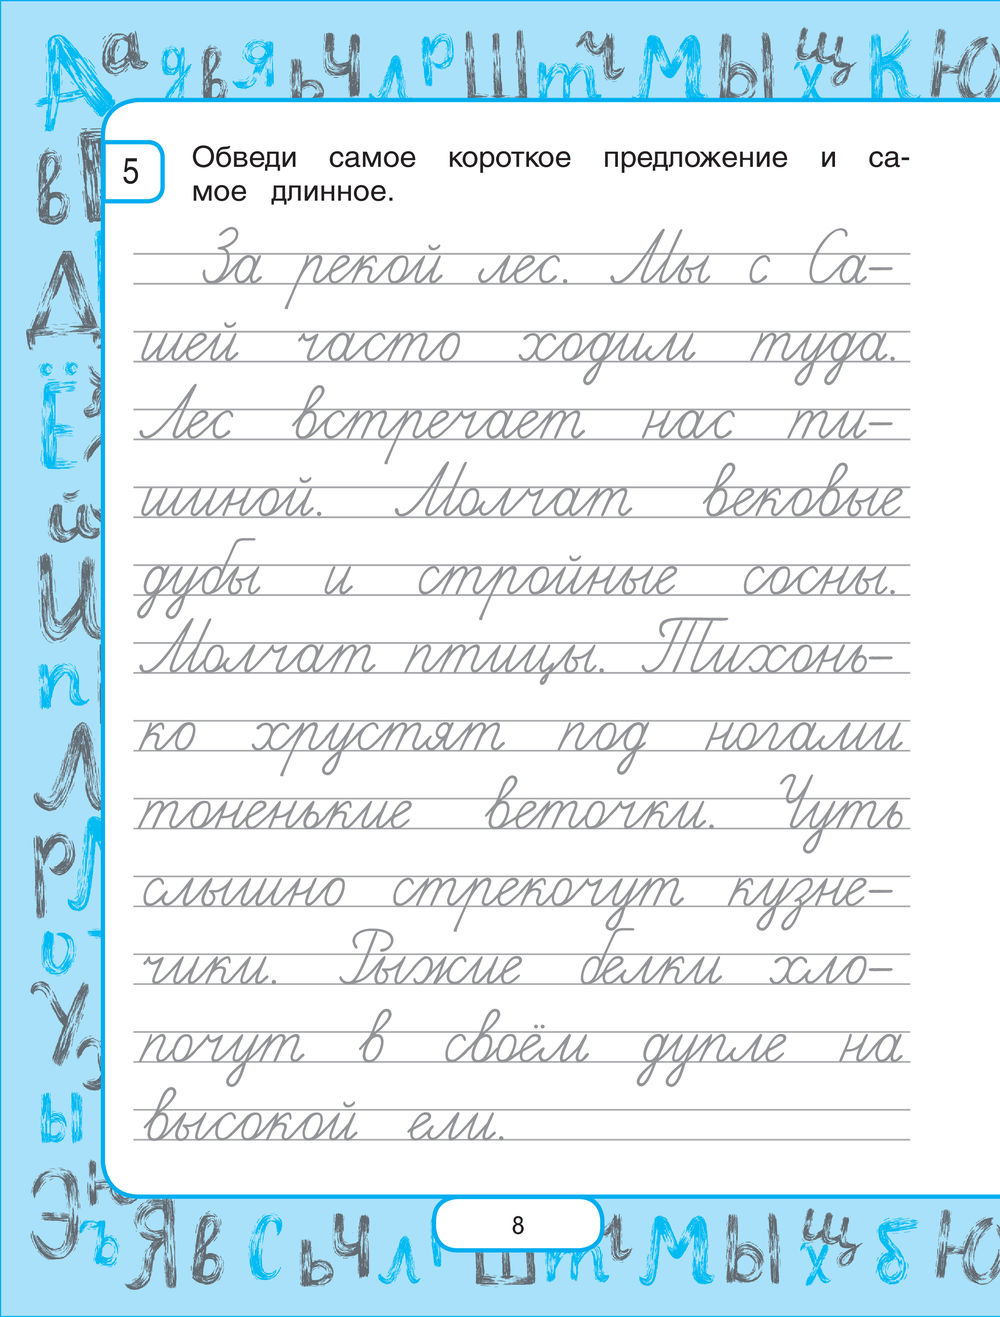 А а д в я ь Ч л р Ш т ч М Ы щ х К Ю
5
Обведи самое короткое предложение и са-
мое длинное.
За рекой лес. Мы с Са-
шей часто ходим туда.
Лес встречает нас ти-
шиной. Молчат вековые
дубы и стройные сосны.
Молчат птицы. Тихонь-
ко хрустят под ногами
тоненькие веточки. Чуть
слышно стрекочут кузне-
чики. Рыжие белки хло-
почут в своём дупле на
высокой ели.
в
Д
Ё
й
И
п
Л
р
о
У
ы
Э ю ъ Я в с ь Ч л р Ш т ч М Ы щ х б Ю
8